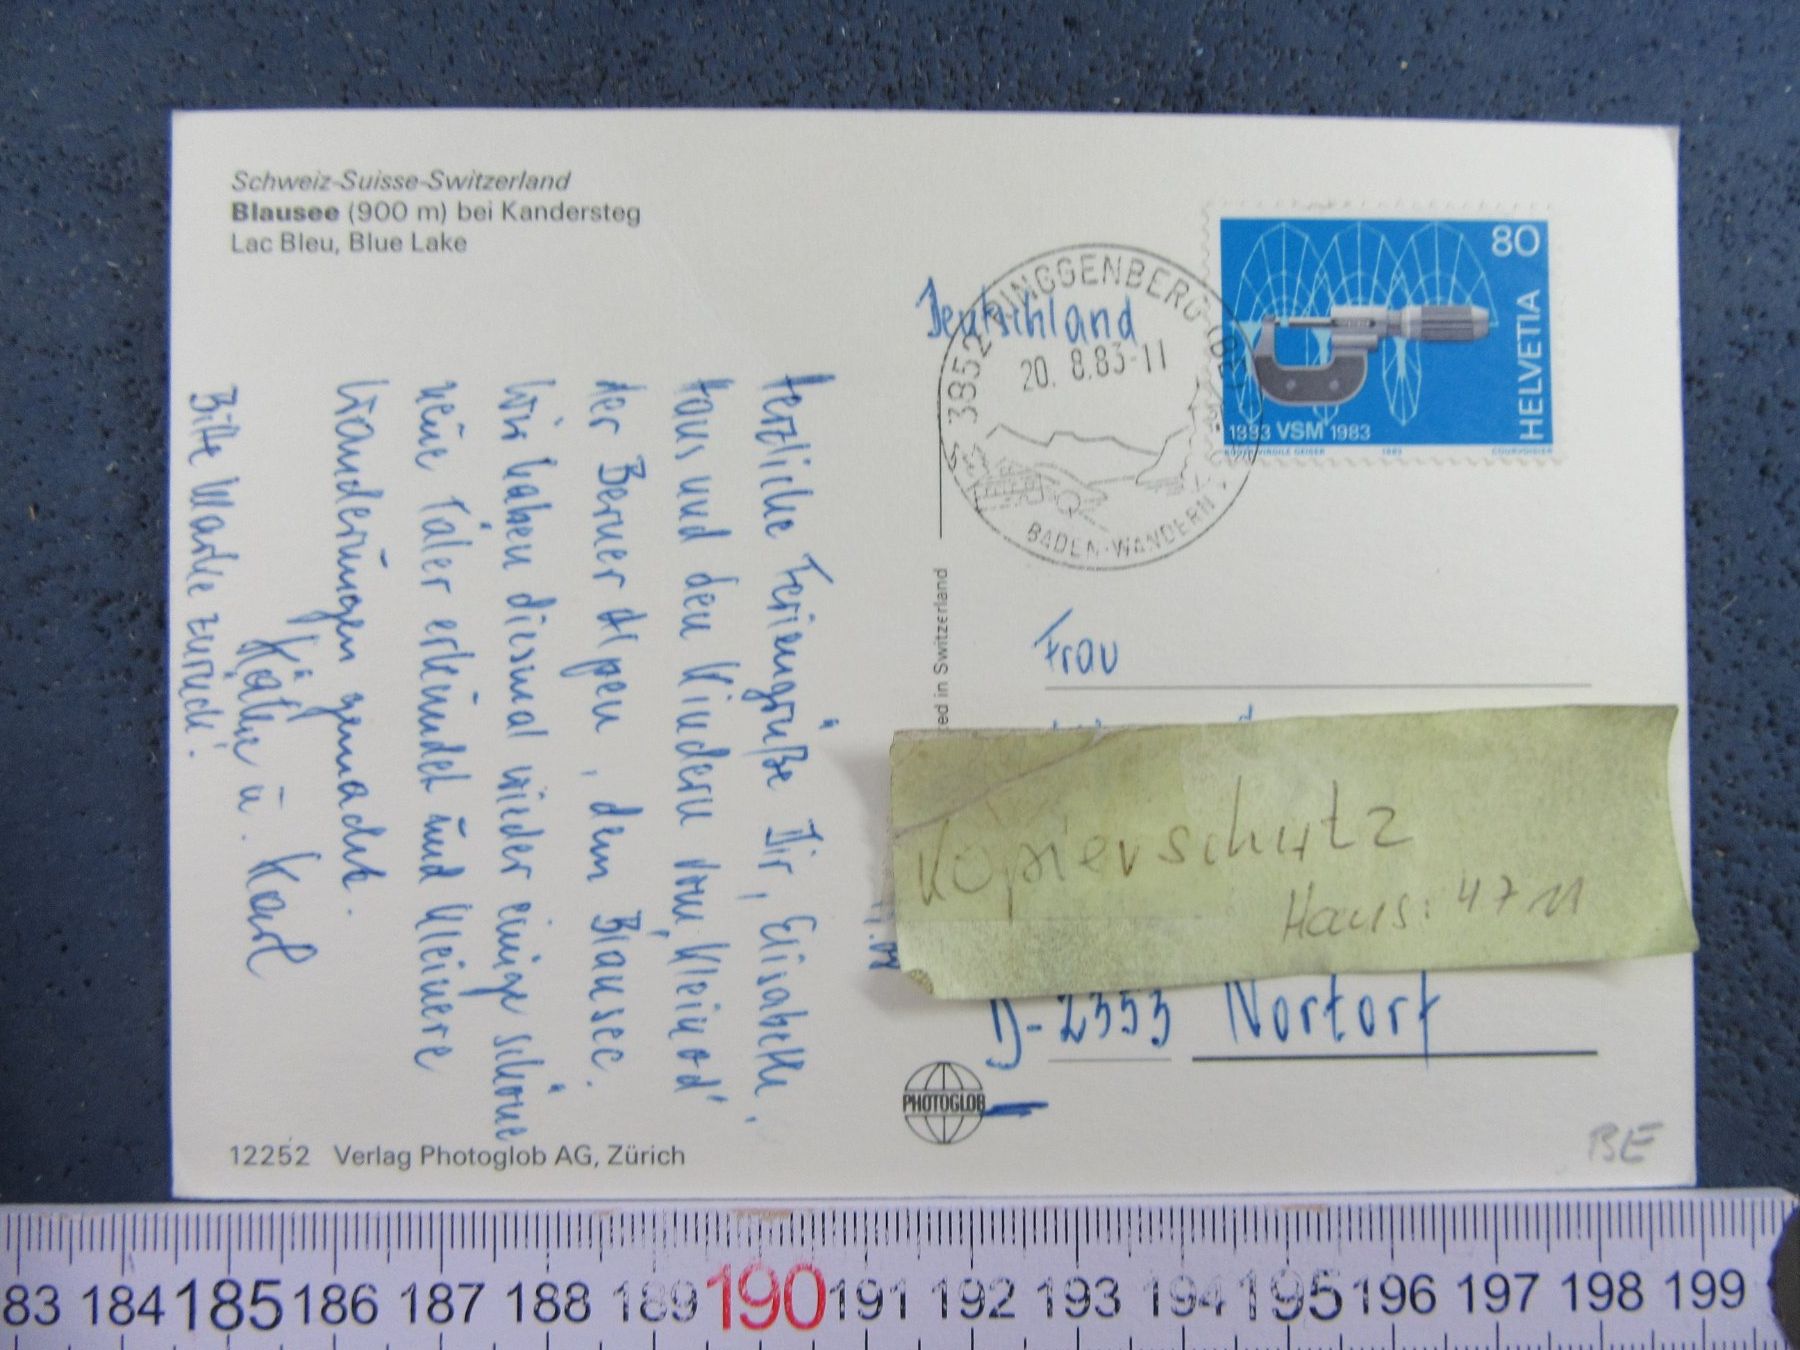 Schweiz-Suisse-Switzerland
Blausee (900 m) bei Kandersteg
Lac Bleu, Blue Lake
Herzliche Feriengrüße Dir, Elisabeth,
Klaus und den Kindern vom "Kleinod"
der Berner Alpen, dem Blausee.
Wir haben diesmal wieder einige schöne
neue Täler erkundet und kleinere
Wanderungen gemacht.
Käthe u. Karl
Bitte Marke zurück!
12252 Verlag Photoglob AG, Zürich
ed in Switzerland
PHOTOGLOB
Deutschland
3852 RINGGENBERG (BE)
20. 8.83-11
BADEN-WANDERN
80
HELVETIA
1883 VSM 1983
1983
COURVOISIER
Frau
Kopierschutz
Haus: 4711
D-2353 Nortorf
BE
83 184 185 186 187 188 189 190 191 192 193 194 195 196 197 198 199